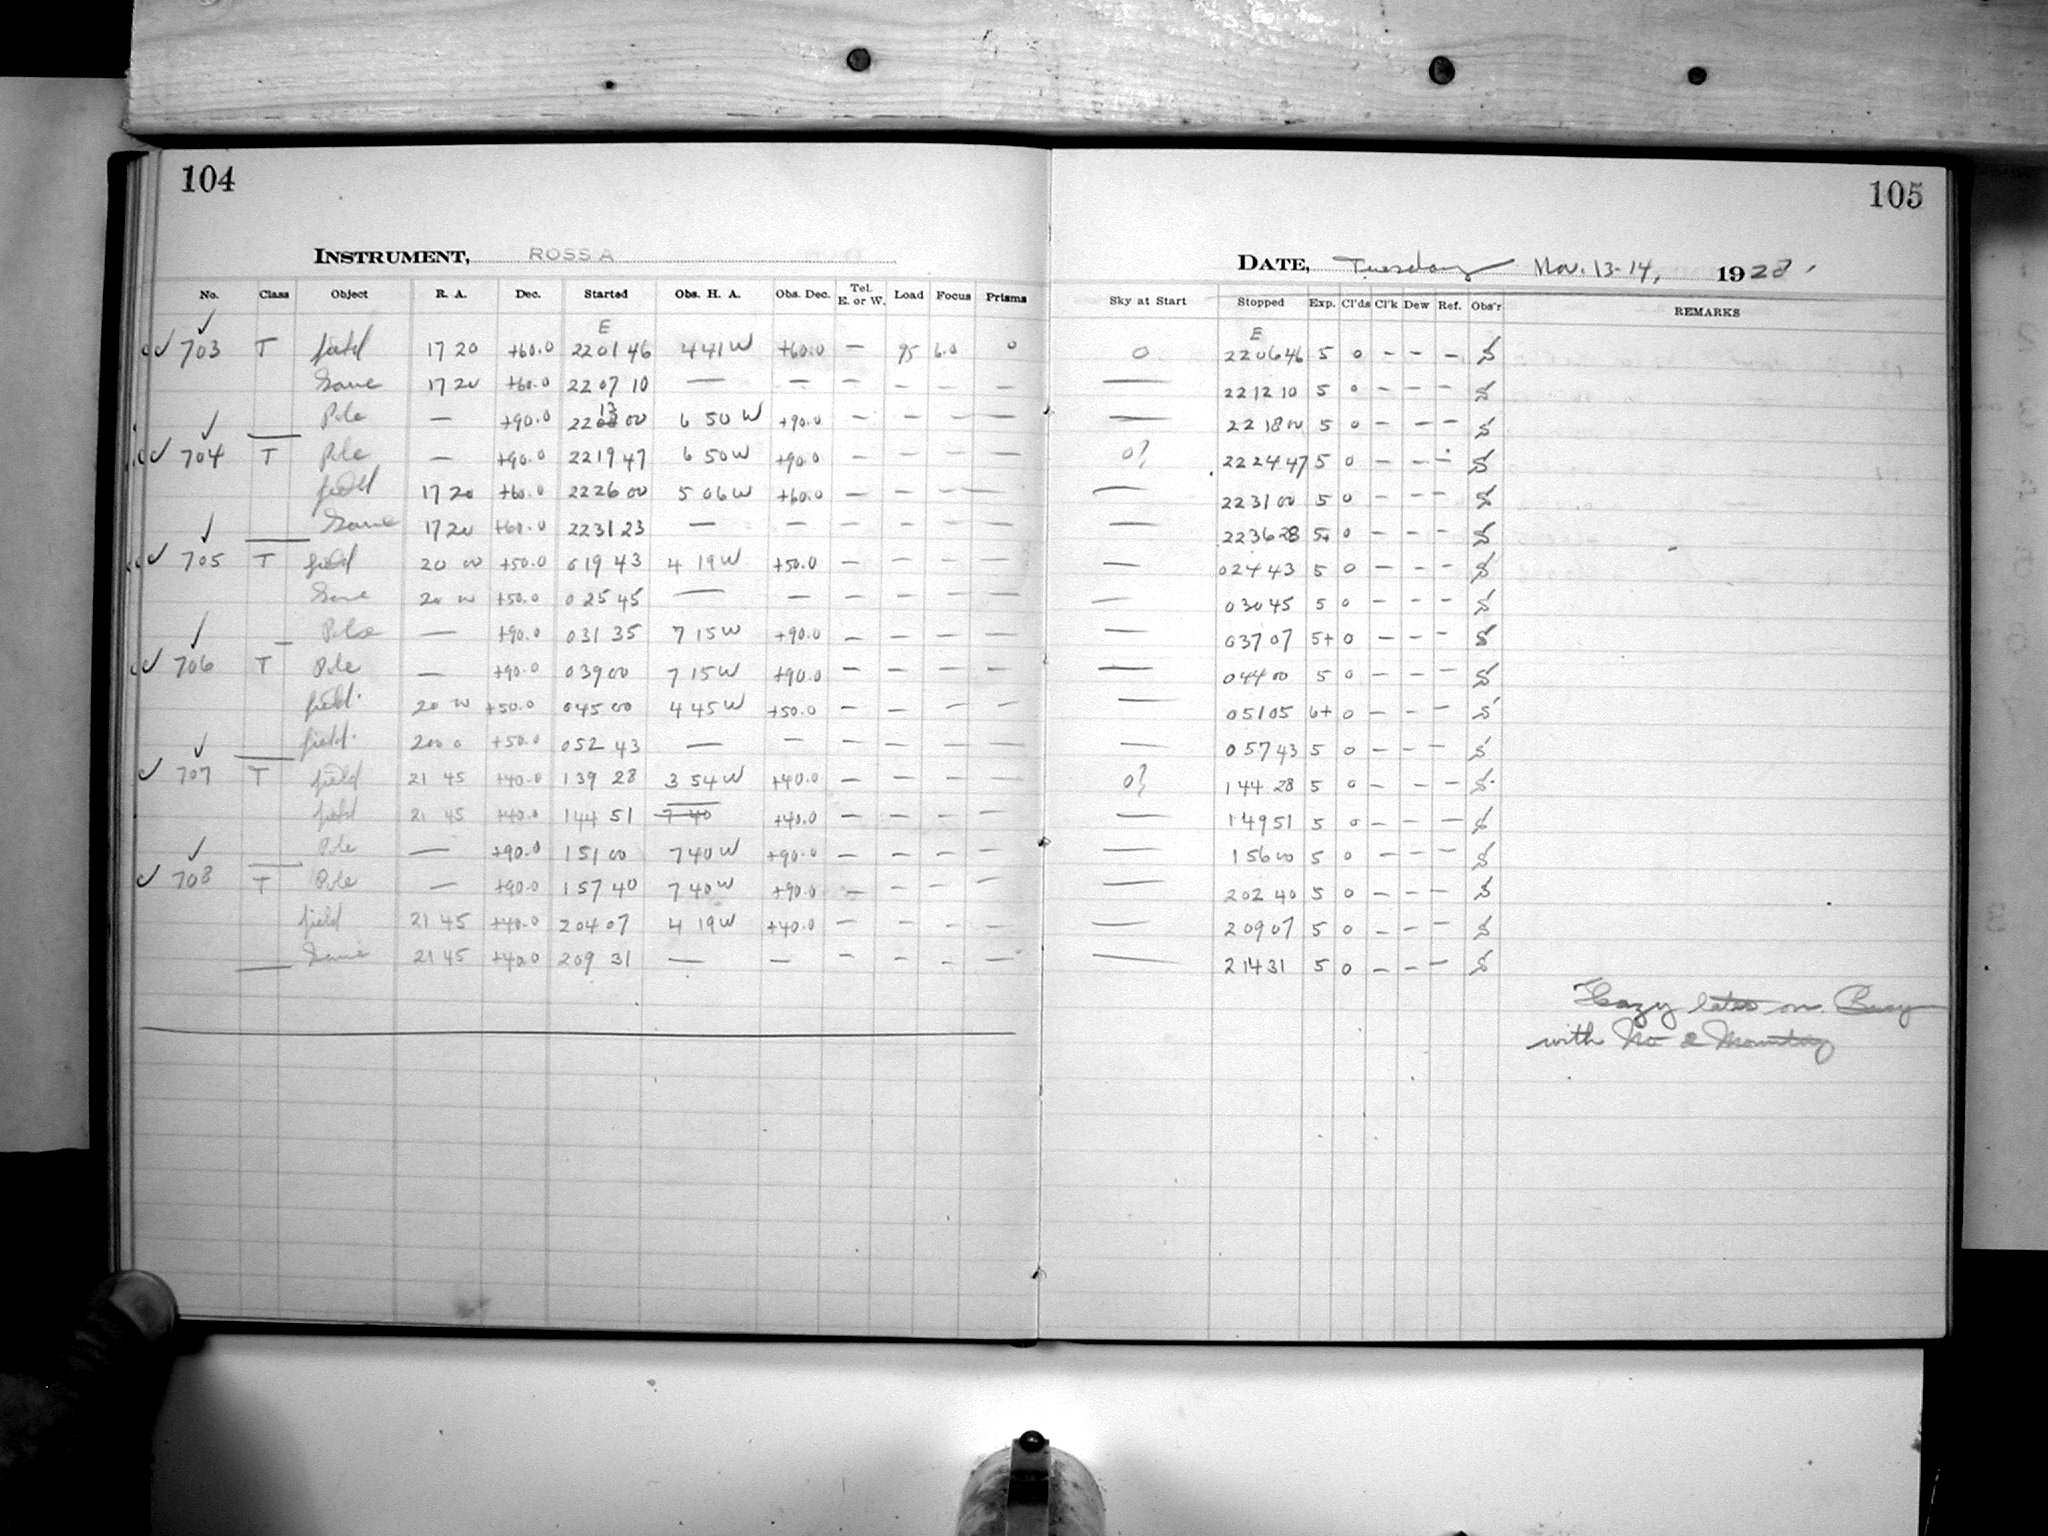 104
INSTRUMENT, ROSS A
No. Class Object R. A. Dec. Started Obs. H. A. Obs. Dec. Tel. E. or W. Load Focus Prisms
E
703 T field 17 20 +60.0 22 01 46 4 41 W +60.0 — 95 6.0 0
Same 17 20 +60.0 22 07 10 — — — — — —
Pole — +90.0 22 13 00 6 50 W +90.0 — — — —
704 T Pole — +90.0 22 19 47 6 50 W +90.0 — — — —
field 17 20 +60.0 22 26 00 5 06 W +60.0 — — — —
Same 17 20 +60.0 22 31 23 — — — — — —
705 T field 20 00 +50.0 0 19 43 4 19 W +50.0 — — — —
Same 20 00 +50.0 0 25 45 — — — — — —
Pole — +90.0 0 31 35 7 15 W +90.0 — — — —
706 T Pole — +90.0 0 39 00 7 15 W +90.0 — — — —
field. 20 00 +50.0 0 45 00 4 45 W +50.0 — — — —
field. 20 00 +50.0 0 52 43 — — — — — —
707 T field 21 45 +40.0 1 39 28 3 54 W +40.0 — — — —
field 21 45 +40.0 1 44 51 7 40 +40.0 — — — —
Pole — +90.0 1 51 00 7 40 W +90.0 — — — —
708 T Pole — +90.0 1 57 40 7 40 W +90.0 — — — —
field 21 45 +40.0 2 04 07 4 19 W +40.0 — — — —
Same 21 45 +40.0 2 09 31 — — — — — —
105
DATE, Tuesday Nov. 13-14, 1928.
Sky at Start Stopped Exp. Cl'ds Cl'k Dew Ref. Obs'r REMARKS
E
0 22 06 46 5 0 — — — S
— 22 12 10 5 0 — — — S
— 22 18 00 5 0 — — — S
0? 22 24 47 5 0 — — — S
— 22 31 00 5 0 — — — S
— 22 36 28 5+ 0 — — — S
— 0 24 43 5 0 — — — S
— 0 30 45 5 0 — — — S
— 0 37 07 5+ 0 — — — S
— 0 44 00 5 0 — — — S
— 0 51 05 6+ 0 — — — S
— 0 57 43 5 0 — — — S
0? 1 44 28 5 0 — — — S.
— 1 49 51 5 0 — — — S
— 1 56 00 5 0 — — — S
— 2 02 40 5 0 — — — S
— 2 09 07 5 0 — — — S
— 2 14 31 5 0 — — — S
Hazy later on. Busy
with No 2 Mounting